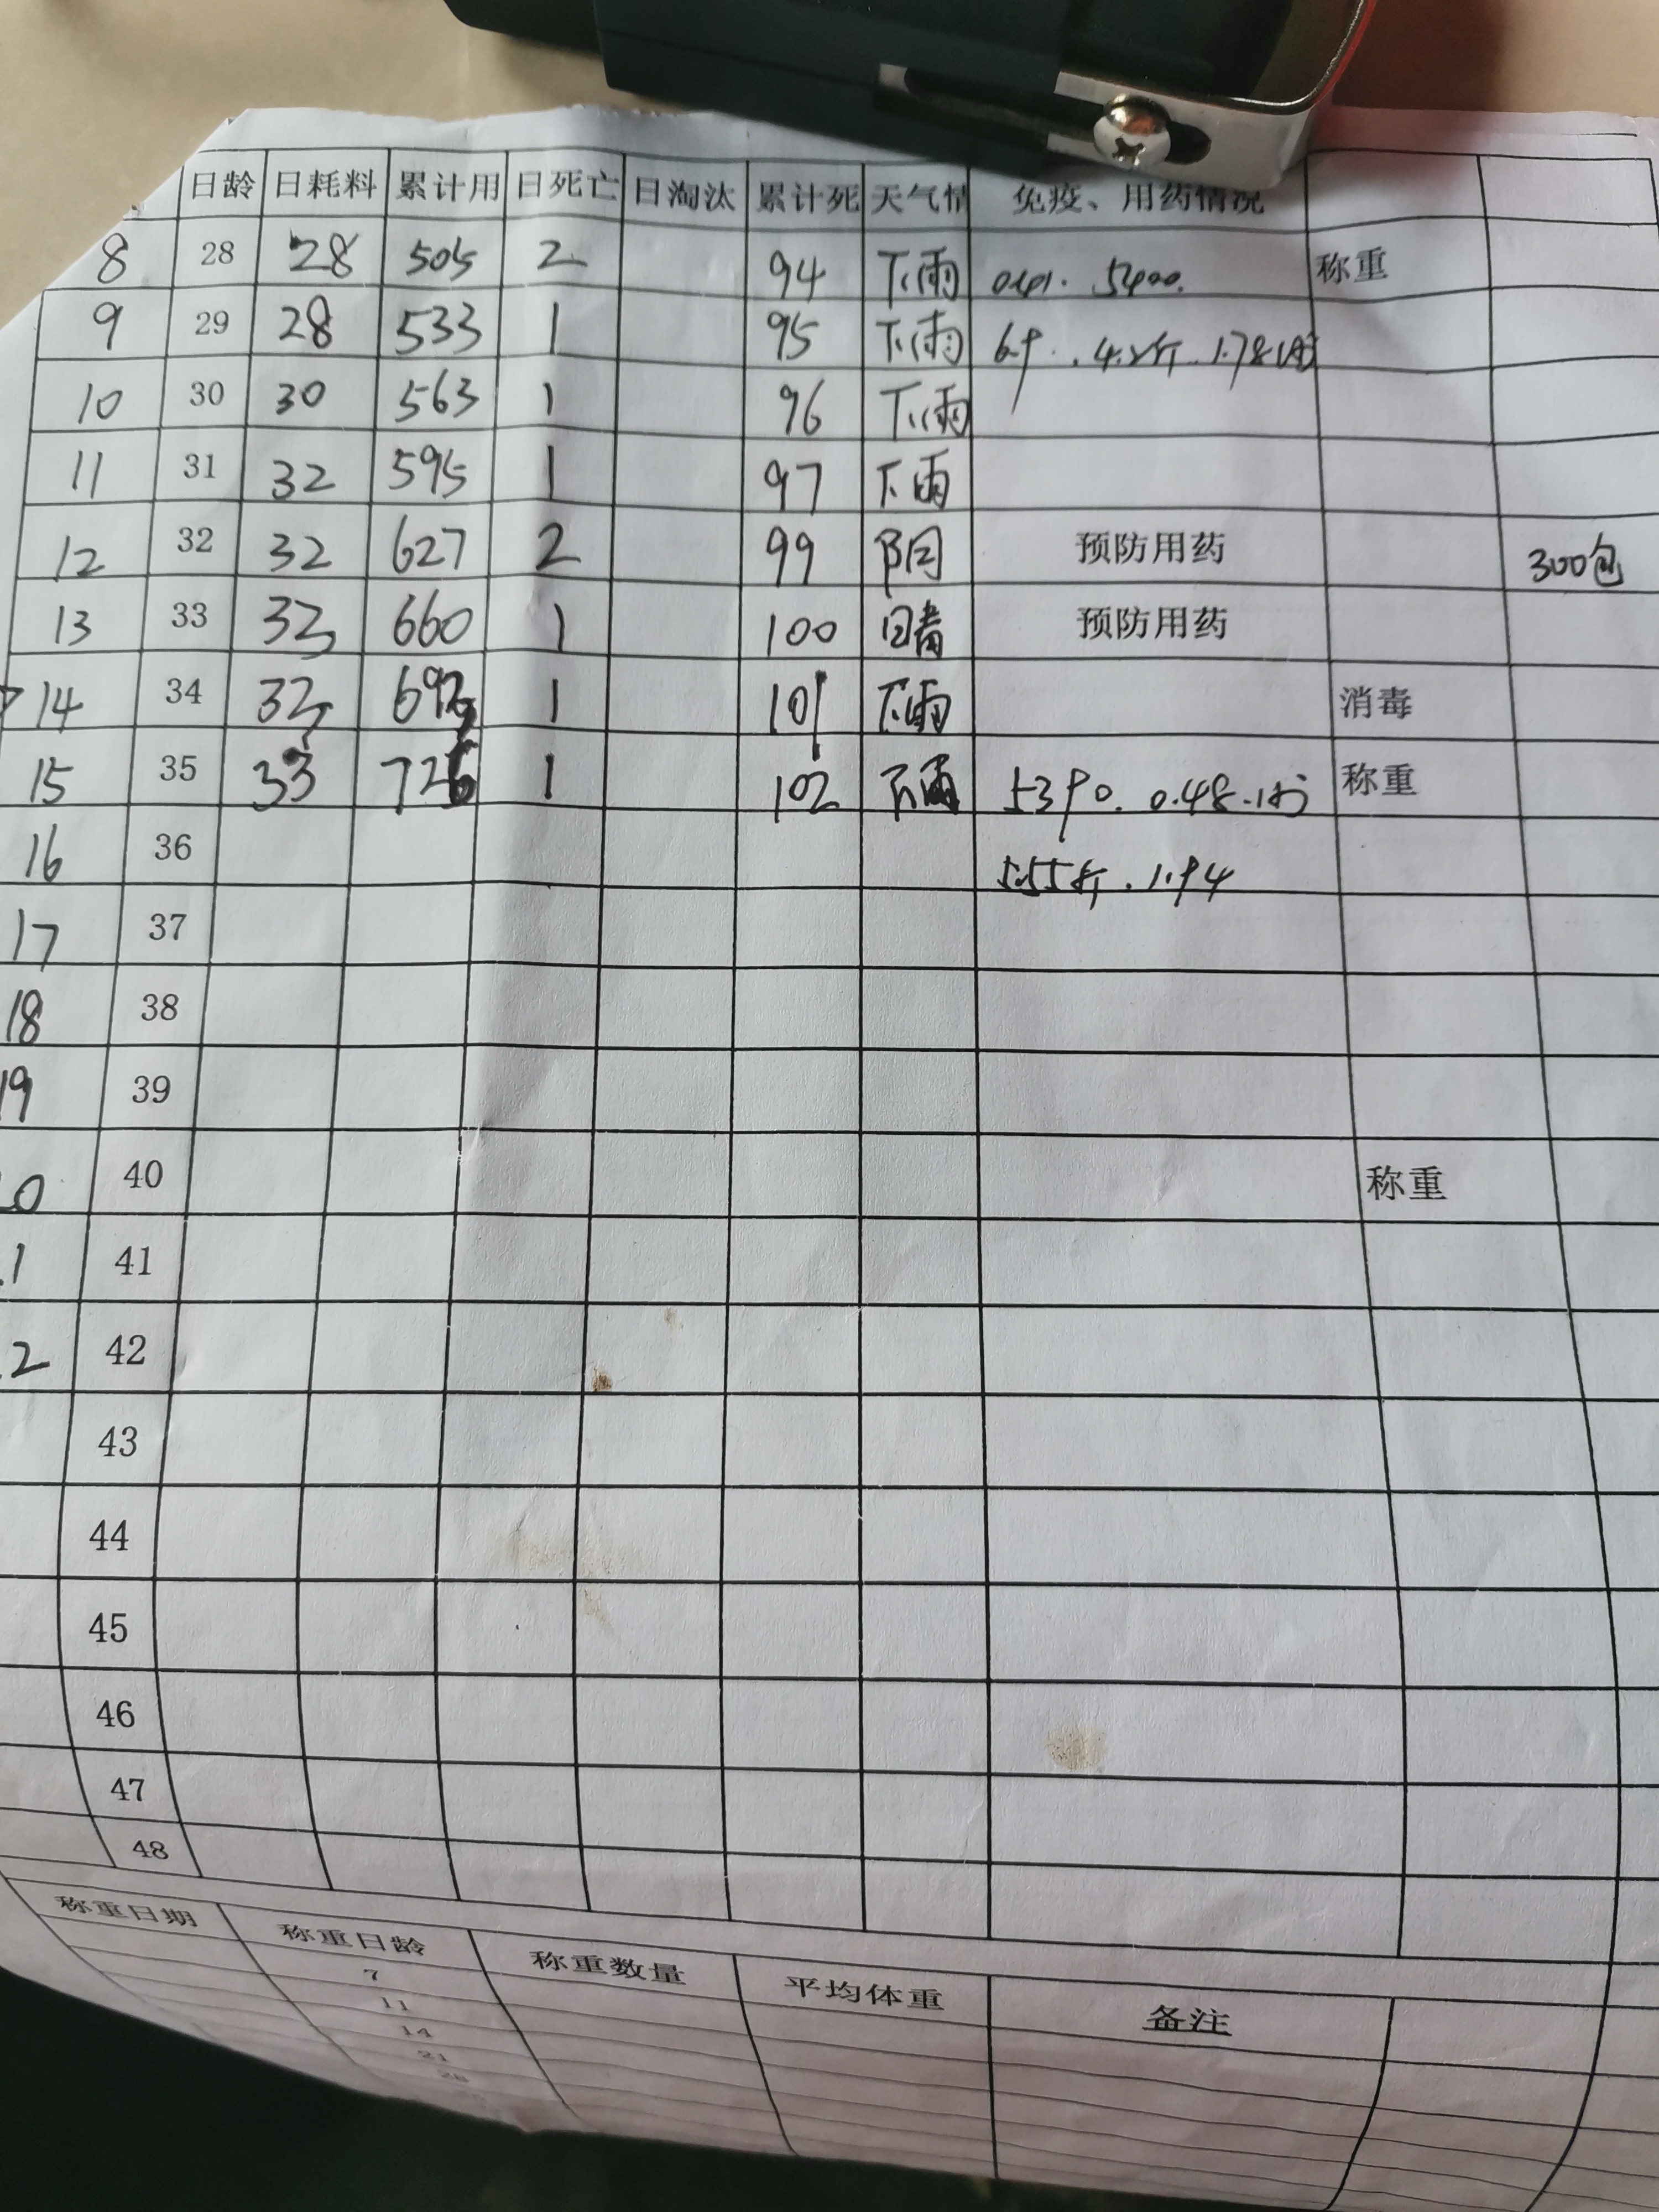 日龄 日耗料 累计用 日死亡 日淘汰 累计死 天气情 免疫、用药情况
8 28 28 505 2 94 下雨 5400. 称重
9 29 28 533 1 95 下雨 1.78
10 30 30 563 1 96 下雨
11 31 32 595 1 97 下雨
12 32 32 627 2 99 阴 预防用药 300包
13 33 33 660 1 100 晴 预防用药
14 34 33 693 1 101 下雨 消毒
15 35 33 726 1 102 下雨 5390. 0.48. 称重
16 36 5.55斤. 1.94
17 37
18 38
19 39
0 40 称重
1 41
2 42
43
44
45
46
47
48
称重日期 称重日龄 称重数量 平均体重 备注
7
11
14
21
28